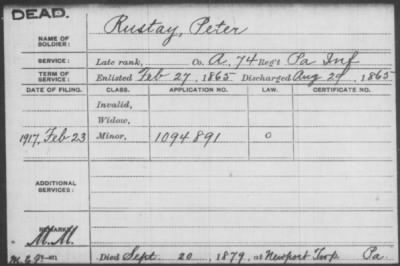 DEAD.
NAME OF SOLDIER: Rustay, Peter
SERVICE: Late rank, Co. A, 74 Reg't Pa Inf
TERM OF SERVICE: Enlisted Feb 27, 1865 Discharged Aug 29, 1865
DATE OF FILING. CLASS. APPLICATION NO. LAW. CERTIFICATE NO.
Invalid,
Widow,
1917, Feb 23 Minor, 1094891 O
ADDITIONAL SERVICES:
REMARKS:
M.M.
Died Sept. 20, 1879, at Newport Twp. Pa.